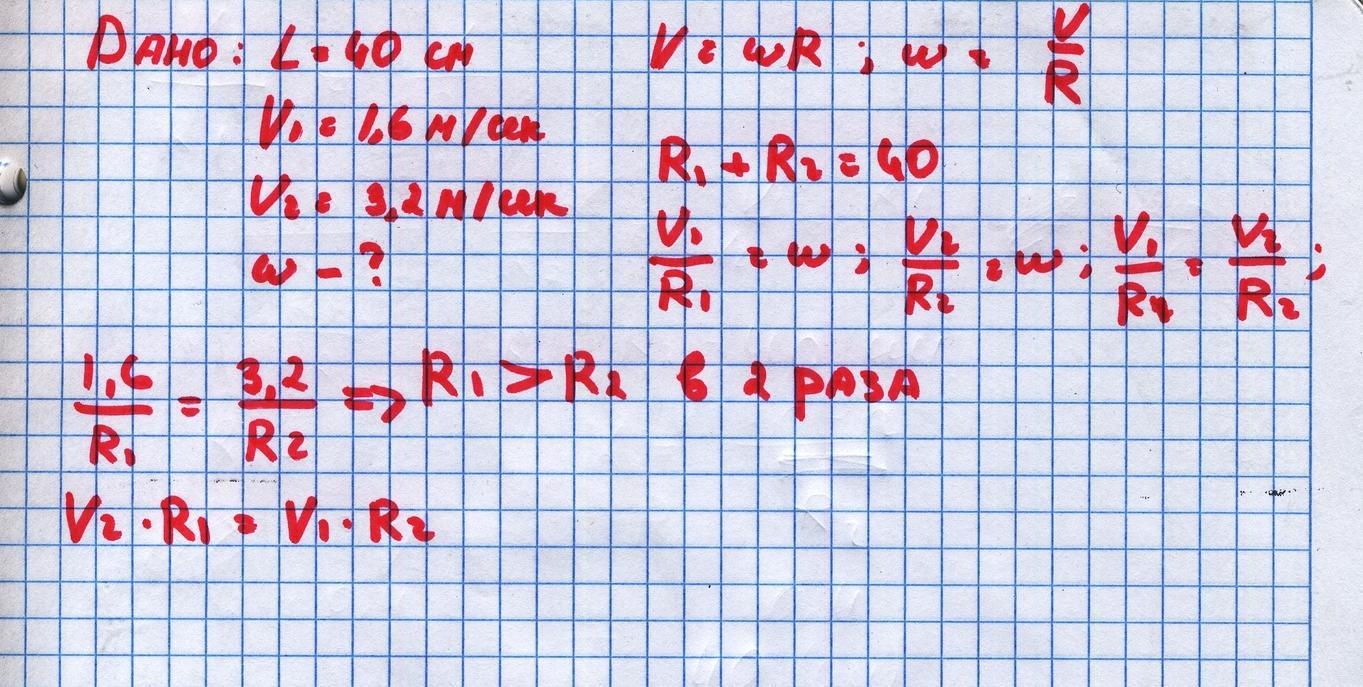 Дано: L = 40 см
V₁ = 1,6 м/сек
V₂ = 3,2 м/сек
ω – ?
V = ωR ; ω = V/R
R₁ + R₂ = 40
V₁/R₁ = ω ; V₂/R₂ = ω ; V₁/R₁ = V₂/R₂ ;
1,6/R₁ = 3,2/R₂ => R₁ > R₂ в 2 раза
V₂ · R₁ = V₁ · R₂